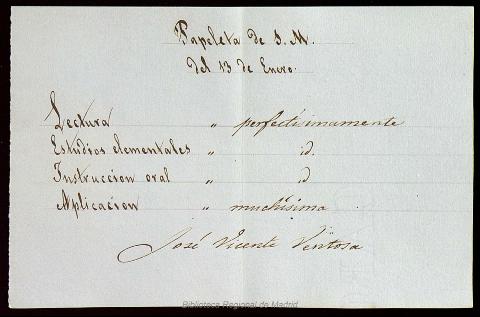 Papeleta de S. M.
del 13 de Enero.
Lectura " perfectisimamente
Estudios elementales " id.
Instruccion oral " id
Aplicacion " muchisima
José Vicente Ventosa
Biblioteca Regional de Madrid